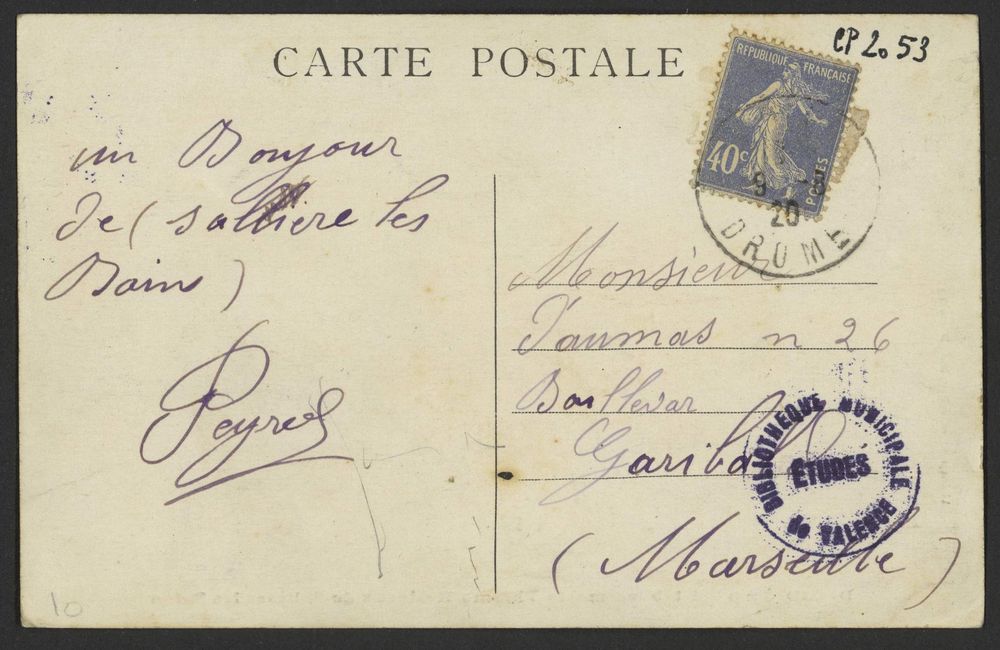 CP 2.53
CARTE POSTALE
REPUBLIQUE FRANÇAISE
40c
POSTES
9 -8
20
DROME
un Bonjour
de (sallière les
Bains)
Peyrol
Monsieur
Daumas n 26
Boullevar
Garibaldi
(Marseille)
BIBLIOTHEQUE MUNICIPALE
ÉTUDES
de VALENCE
10